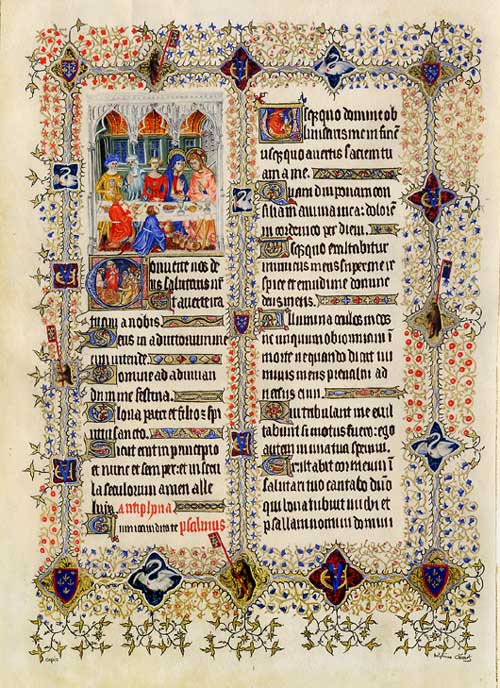 Converte nos de
us salutaris nr̄
et averte ira
tuam a nobis.
Deus in adiutorium me
um intende.
Domine ad adiuvan
dum me festina.
Gloria patri et filio et spi
ritui sancto.
Sicut erat in principio
et nunc et semper: et in secu
la seculorum amen alle
luia. antiphona
Cum iocunditate psalmus
Usquequo domine ob
livisceris me in finem
usquequo avertis faciem tu
am a me.
Quamdiu ponam con
silia in anima mea: dolorem
in corde meo per diem.
Usquequo exaltabitur
inimicus meus super me re
spice et exaudi me domine
deus meus.
Illumina oculos meos
ne unquam obdormiam ī
morte nequando dicat ini
micus meus prevalui ad
versus eum.
Qui tribulant me exul
tabunt si motus fuero: ego
autem in mīa tua speravi.
Exultabit cor meum ī
salutari tuo cantabo dño
qui bona tribuit michi et
psallam nomini domini